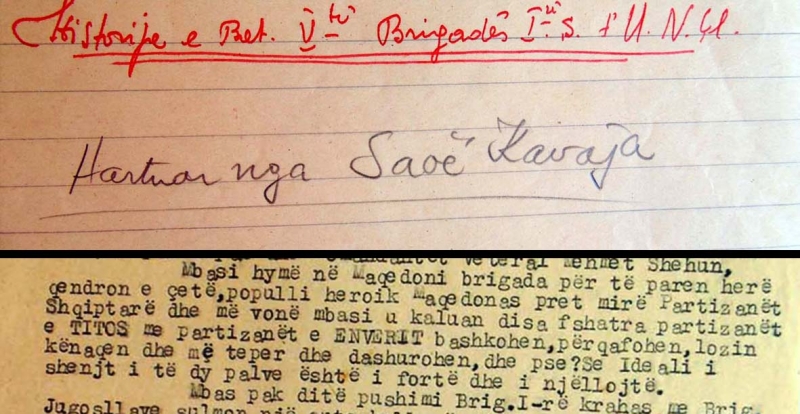 Historije e Bat. V-të Brigadës I-ë S. t'U.N.Çl.
Hartuar nga Saoë Kavaja
Komandantët Veteral Mehmet Shehun,
Mbasi hymë në Maqedoni brigada për të paren herë
qendron e çetë,populli heroik Maqedonas pret mirë Partizanët
Shqiptarë dhe më vonë mbasi u kaluan disa fshatra partizanët
e TITOS me partizanët e ENVERIT bashkohen,përqafohen,lozin
kënaqen dhe më teper dhe dashurohen,dhe pse?Se Ideali i
shenjt i të dy palve është i fortë dhe i njëllojtë.
Mbas pak ditë pushimi Brig.I-rë krahas me Brig.
Jugosllave sulmon një